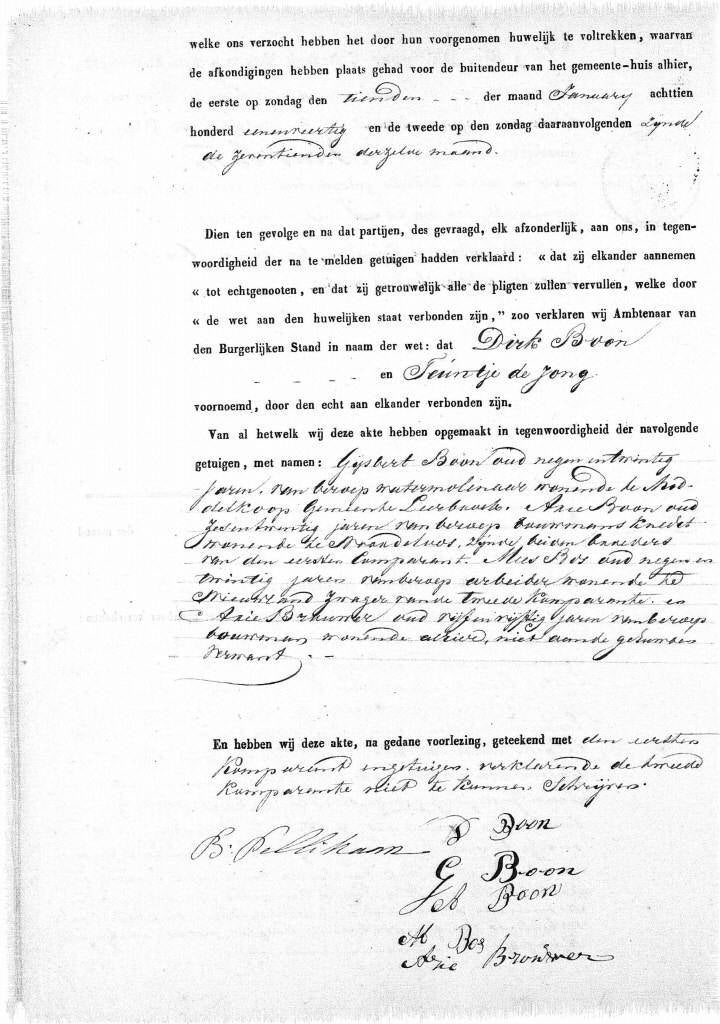 welke ons verzocht hebben het door hun voorgenomen huwelijk te voltrekken, waarvan
de afkondigingen hebben plaats gehad voor de buitendeur van het gemeente-huis alhier,
de eerste op zondag den tienden - - - der maand January achttien
honderd eenenveertig en de tweede op den zondag daaraanvolgenden zynde
de zeventienden derzelve maand.
Dien ten gevolge en na dat partijen, des gevraagd, elk afzonderlijk, aan ons, in tegen-
woordigheid der na te melden getuigen hadden verklaard: « dat zij elkander aannemen
« tot echtgenooten, en dat zij getrouwelijk alle de pligten zullen vervullen, welke door
« de wet aan den huwelijken staat verbonden zijn,” zoo verklaren wij Ambtenaar van
den Burgerlijken Stand in naam der wet: dat Dirk Boon
- - - - en Teuntje de Jong
voornoemd, door den echt aan elkander verbonden zijn.
Van al hetwelk wij deze akte hebben opgemaakt in tegenwoordigheid der navolgende
getuigen, met namen: Gysbert Boon oud negen entwintig
jaren, van beroep watermolenaar wonende te Mid-
delkoop Gemeente Leerbroek. Arie Boon oud
zesentwintig jaren van beroep bouwmans knecht
wonende te zynde beiden broeders
van den eersten Comparant. Mees Bos oud negen en
twintig jaren van beroep arbeider wonende te
Nieuwland zwager van de tweede Komparante. en
Arie Brouwer oud vyfenvyftig jaren van beroep
bouwman wonende alhier, niet aan de gehuwdes
verwant. -
En hebben wij deze akte, na gedane voorlezing, geteekend met den eersten
Komparant en getuigen. verklarende de tweede
Komparante niet te kunnen Schryven.
D Boon
B. Pellikaan
G Boon
A Boon
M Bos
Arie Brouwer